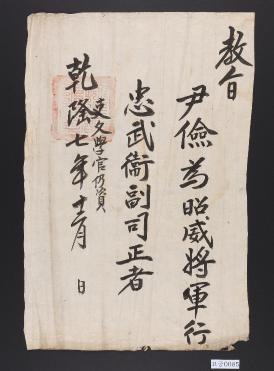 敎旨
尹儉為昭威將軍行
忠武衛副司正者
乾隆七年十二月　日
吏文學官仍資